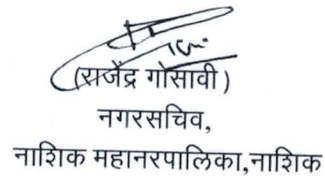 (राजेंद्र गोसावी)
नगरसचिव,
नाशिक महानरपालिका,नाशिक